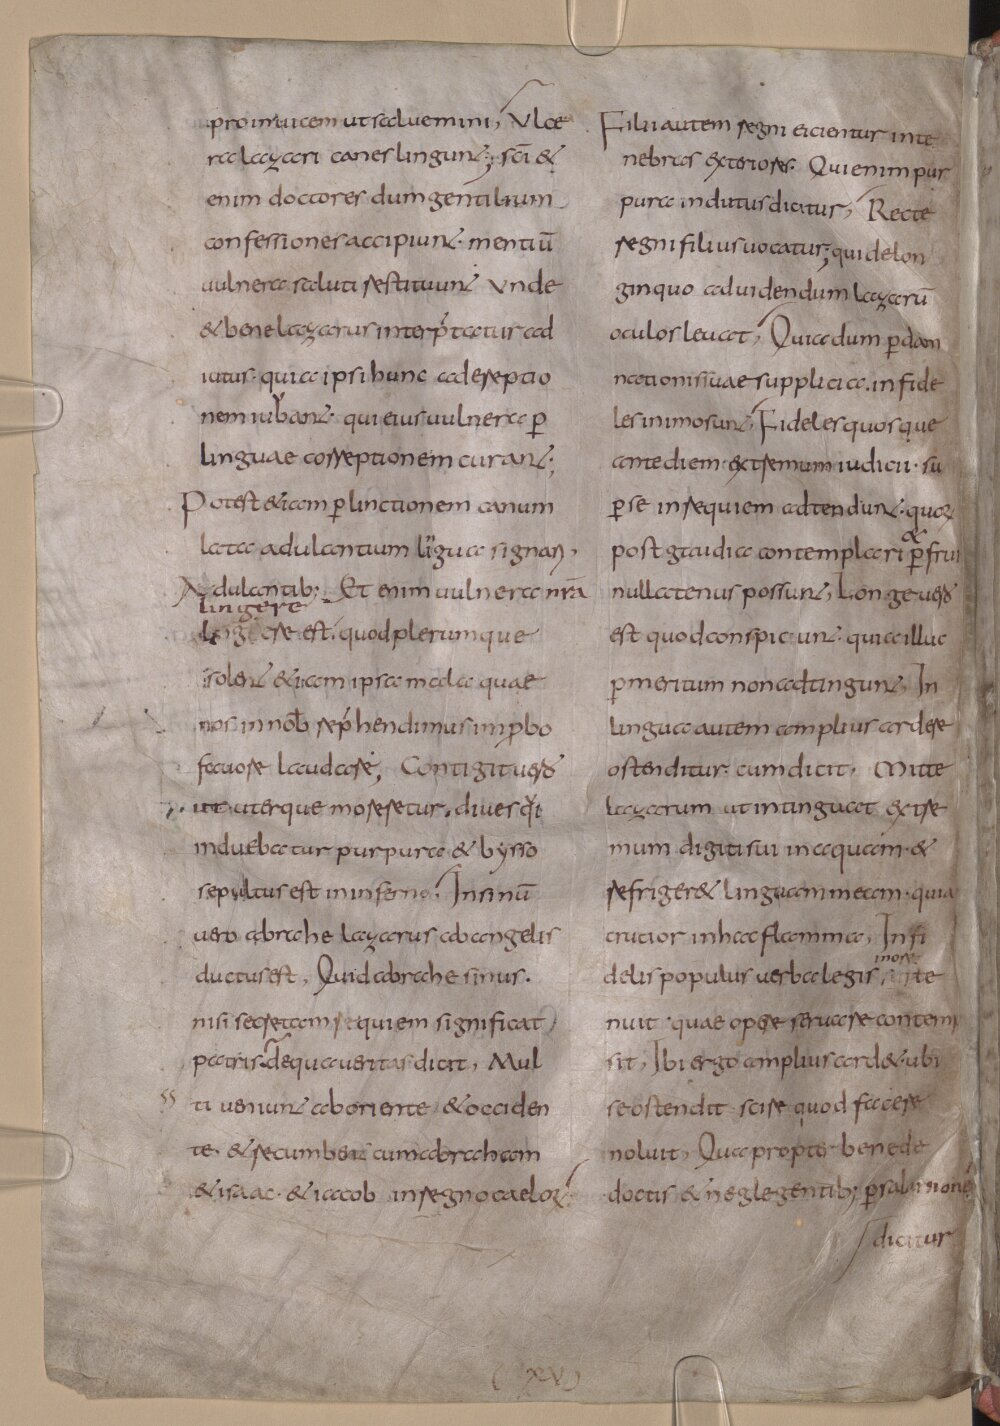 pro inuicem ut saluemini, Vlce
ra lazari canes lingunt; sc̄i &
enim doctores dum gentilium
confessiones accipiunt. mentiū
uulnera saluti restituunt Vnde
& bene lazarus interp̄tatur ad
iutus. quia ipsi hunc ad ereptio
nem iubant. qui eius uulnera ꝑ
linguae correptionem curant;
Potest & iam ꝑ linctionem canum
lata adulantium ligua signari,
Adulantib; Et enim uulnera nr̄a
lingere
est. quod plerumque
solent & iam ipsa mala quae
nos in nob̄ rep̄hendimus improbo
fauore laudare, Contigit uero
ut uterque moreretur, diues qui
induebatur purpura & bysso
sepultus est in inferno, In sinū
uero abrahe lazarus ab angelis
ductus est, Quid abrahe sinus.
nisi secretam requiem significat
patris. de qua ueritas dicit, Mul
ti uenient ab oriente & occiden
te. & recumbent cum abraham
& isaac. & iacob in regno caeloꝝ.
Filii autem regni eicientur in te
nebras exteriores. Qui enim pur
pura indutus dicitur, Recte
regni filius uocatur; qui de lon
ginquo ad uidendum lazarū
oculos leuat, Quia dum ꝑ dam
nationis suae supplicia. infide
les in imo sunt, Fideles quosque
ante diem extremum iudicii. su
ꝑ se in requiem adtendunt. quoꝝ
&
post gaudia contemplari ꝑfrui
nullatenus possunt, Longe uero
est quod conspiciunt. quia illuc
ꝑ meritum non adtingunt, In
lingua autem amplius ardere
ostenditur. cum dicit, Mitte
lazarum ut intinguat extre
mum digiti sui in aquam. &
refriger& linguam meam. quia
crucior in hac flamma, Infi
in ore
delis populus uerba legis te
nuit. quae opere seruare contem
sit, Ibi ergo amplius ard& ubi
se ostendit scire quod facere
noluit, Qua propter bene de
doctis & neglegentib; ꝑ salamonē
dicitur
(XV)